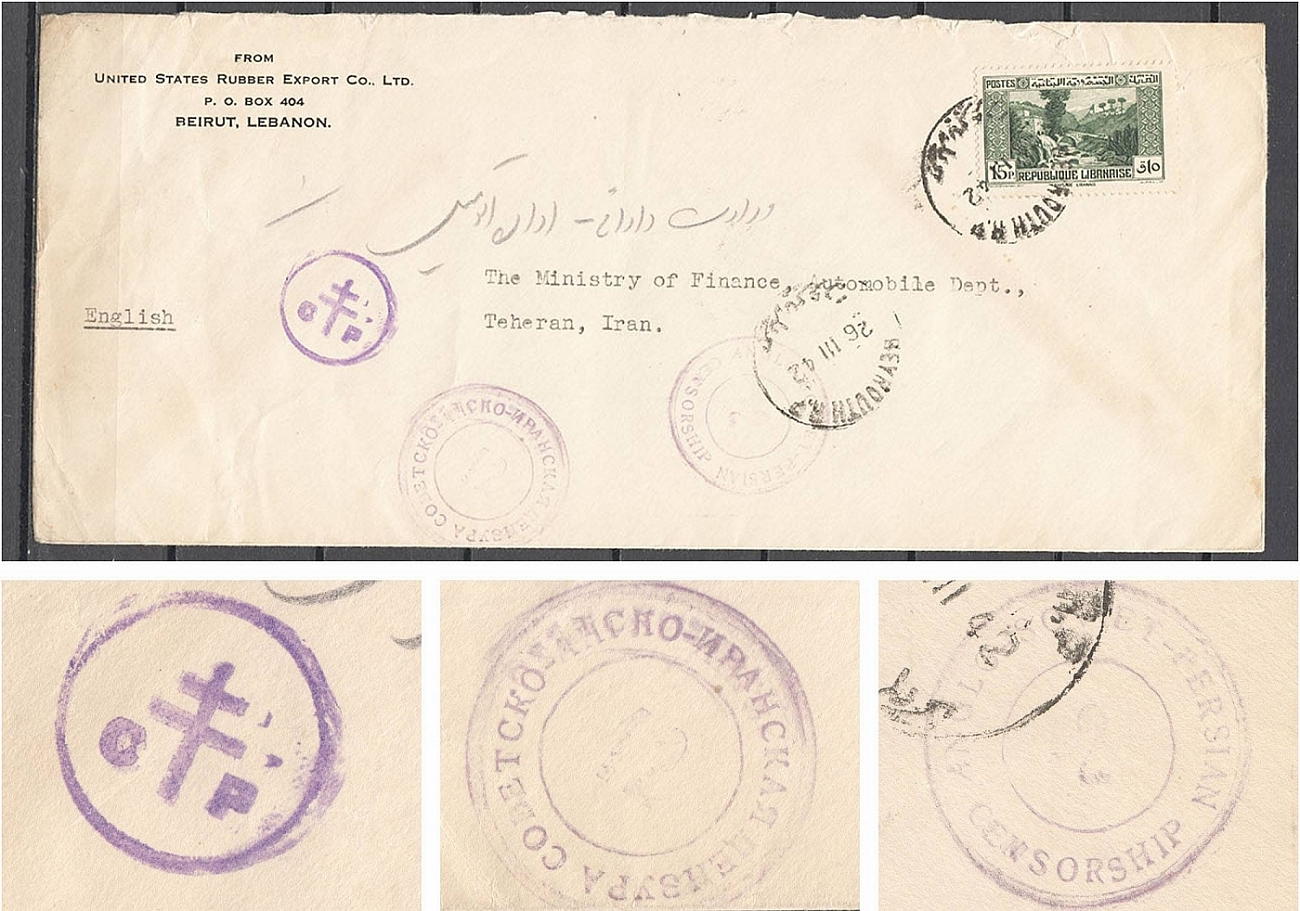 FROM
UNITED STATES RUBBER EXPORT CO., LTD.
P. O. BOX 404
BEIRUT, LEBANON.
POSTES
15P REPUBLIQUE LIBANAISE
وزارت دارائی -
The Ministry of Finance, Automobile Dept.,
Teheran, Iran.
English
O P
BEYROUTH R.P
26 III 42
PERSIAN CENSORSHIP
ИРАНСКАЯ ЦЕНЗУРА СОВЕТСКО
O P
СОВЕТСКО ИРАНСКАЯ ЦЕНЗУРА
ANGLO SOVIET-PERSIAN
CENSORSHIP